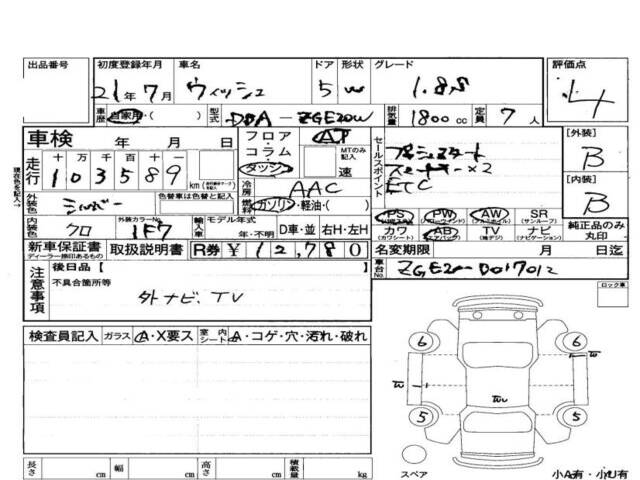 出品番号 初度登録年月 車名 ドア 形状 グレード 評価点
21年 7月 ウィッシュ 5 W 1.8S 4
車歴 自家用・( ) 型式 DBA-ZGE20W 排気量 1800cc 定員 7人
車検 年 月 日 フロア・コラム・ダッシュ AT MTのみ記入 速 セールスポイント プッシュスタート [外装] B
走行 十 万 千 百 十 一
103589 km スマートキー×2
現状を記入→ 冷房 AAC ETC [内装] B
外装色 シルバー 色替車は色替と記入 燃料 ガソリン・軽油・( )
PS PW AW SR(サンルーフ) 純正品のみ丸印
内装色 クロ 外装カラーNo. 1F7 輸入車 モデル年式 年・不明 D車・並 右H・左H カワ(カワシート) AB(エアバッグ) TV(地デジ) ナビ(ナビゲーション)
新車保証書 ディーラー捺印あるもの 取扱説明書 R券 ¥12,780 名変期限 月 日迄
注意事項 後日品[ 車台No. ZGE20-0017012
不具合箇所等 ロック車
外ナビ、TV
検査員記入 ガラス A・X要ス 室内シート A・コゲ・穴・汚れ・破れ
6 6
W W
W
5 5
長さ cm 幅 cm 高さ cm 積載量 kg
スペア 小A有・小U有